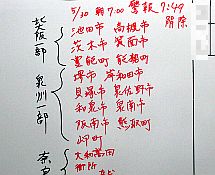 5/30 朝7:00 警報 7:49
解除
北大阪部
池田市 高槻市
茨木市 箕面市
豊能町 能勢町
泉州一部
堺市 岸和田市
貝塚市 泉佐野市
和泉市 泉南市
阪南市 熊取町
岬町
大和高田
御所